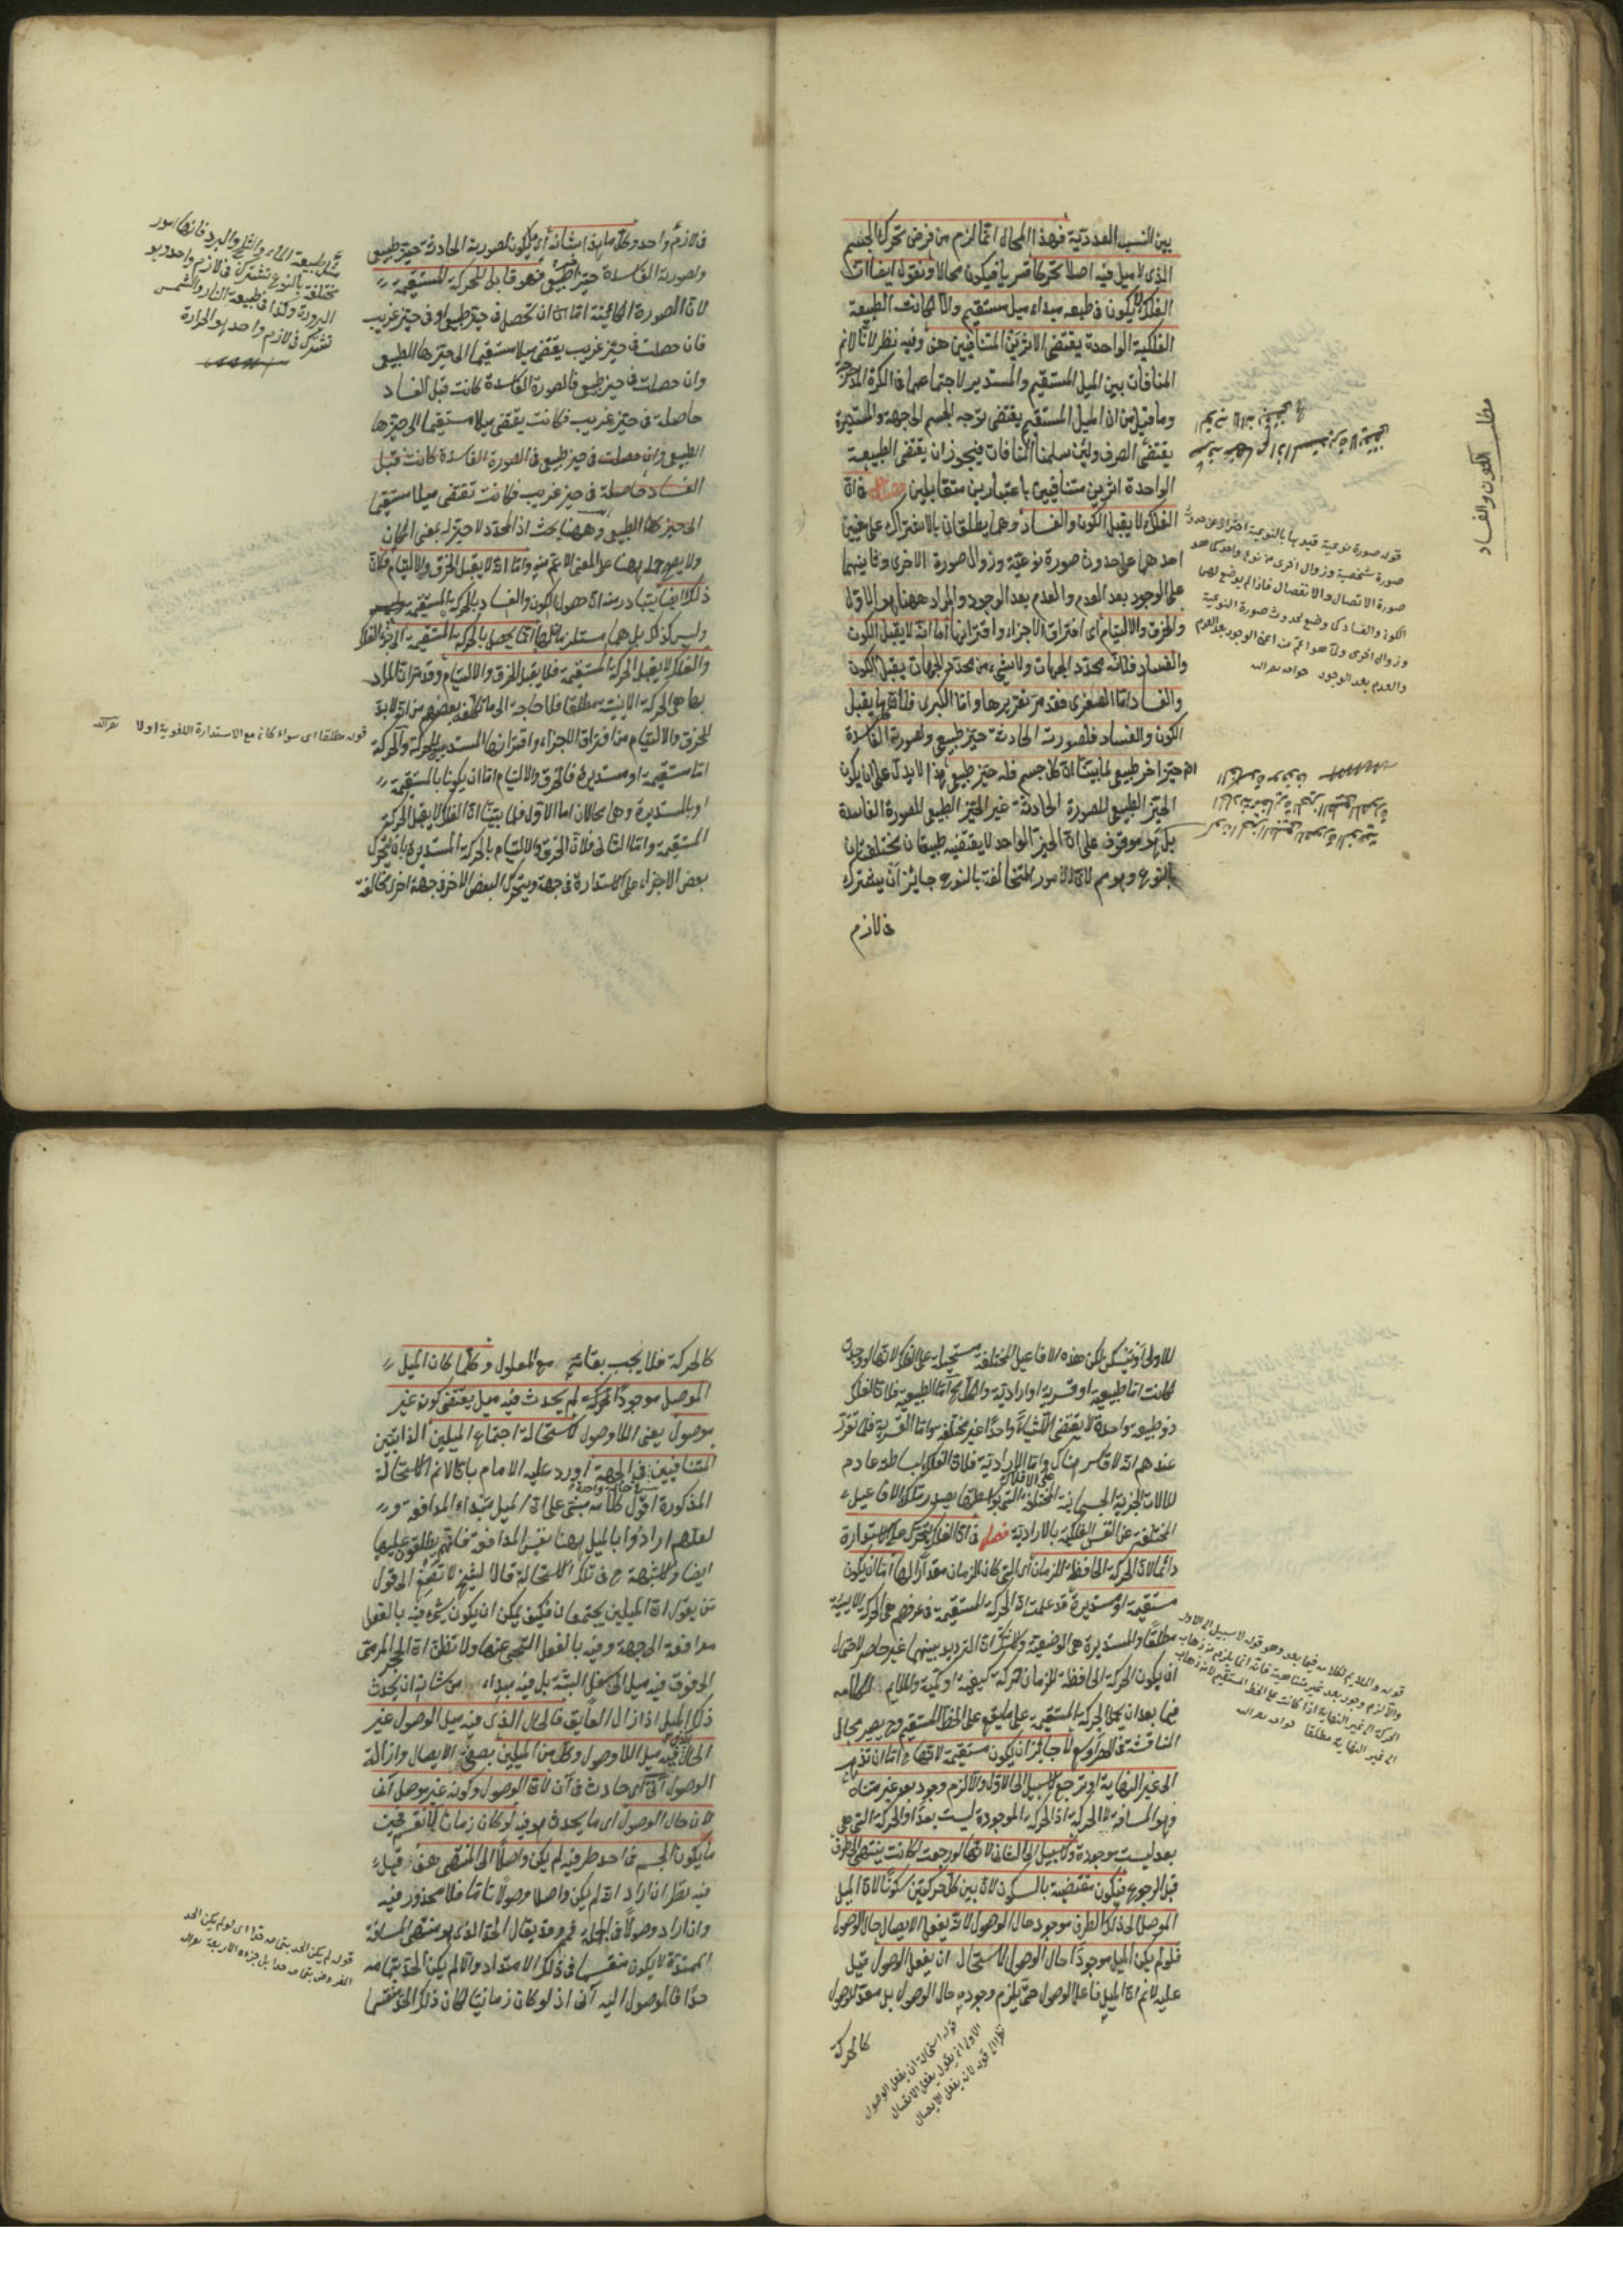 بين النسب العددية فهذا المحال انما لزم من فرض تحرك الجسم
الذى لا ميل فيه اصلا تحركا قسريا فيكون محالا ونقول ايضا ان
الفلك لا يكون فى طبعه مبداء ميل مستقيم والا لكانت الطبيعة
الفلكية الواحدة يقتضى الاثرين المتنافيين هف وفيه نظر لانا لانم
المنافات بين الميل المستقيم والمستدير لاجتماعهما فى الكرة المدحرجة
وما قيل من ان الميل المستقيم يقتضى توجه الجسم الى جهة والمستديرة
يقتضى الصرف ولئن سلمنا المنافات فيجوز ان يقتضى الطبيعة
الواحدة اثرين متنافيين باعتبارين متقابلين فصل فى ان
الفلك لا يقبل الكون والفساد وهما يطلقان بالاشتراك على معنيين
احدهما على حدوث صورة نوعية وزوال صورة الاخرى وثانيهما
على الوجود بعد العدم والعدم بعد الوجود والمراد ههنا هو الاول
والخرق والالتيام اى افتراق الاجزاء واقترانها اما انه لا يقبل الكون
والفساد فلانه محدد الجهات ولا شىء من محدد الجهات يقبل الكون
والفساد اما الصغرى فقد مر تقريرها واما الكبرى فلان كل ما يقبل
الكون والفساد فلصورته الحادثة حيز طبيعى ولصورته الفاسدة
حيز اخر طبيعى لما بينا ان كل جسم فله حيز طبيعى هذا لا يدل على ان يكون
الحيز الطبيعى للصورة الحادثة غير الحيز الطبيعى للصورة الفاسدة
بل هو موقوف على ان الحيز الواحد لا يقتضيه طبيعتان مختلفتان
بالنوع وهو مم لان الامور المتخالفة بالنوع جايز ان يشترك
فى لازم
مطلب الكون والفساد
قوله صورة نوعية قيد بها بالنوعية احترازا عن حدوث
صورة شخصية وزوال اخرى من نوع واحد كما هو
صورة الاتصال والانفصال فاذا لم يوضع لهما
الكون والفساد كما وضع لحدوث صورة النوعية
وزوال اخرى
والعدم بعد الوجود
فى لازم واحد وكل ما هذا شانه اى يكون لصورته الحادثة حيز طبيعى
ولصورته الفاسدة حيز اخر طبيعى فهو قابل للحركة المستقيمة
لان الصورة الكائنة اما ان تحصل فى حيز طبيعى او فى حيز غريب
فان حصلت فى حيز غريب يقتضى ميلا مستقيما الى حيزها الطبيعى
وان حصلت فى حيز طبيعى فالصورة الفاسدة كانت قبل الفساد
حاصلة فى حيز غريب فكانت يقتضى ميلا مستقيما الى حيزها
الطبيعى وان حصلت فى حيز طبيعى فى الصورة الفاسدة كانت قبل
الفساد حاصلة فى حيز غريب فكانت تقتضى ميلا مستقيما
الى حيزها الطبيعى وههنا بحث اذ المحدد لا حيز له بمعنى المكان
ولا يصح حمله ههنا على المعنى الاعم منه واما انه لا يقبل الخرق والالتيام فلان
ذلك ايضا يتبادر منه ان حصول الكون والفساد بالحركة المستقيمة
وليس كذلك بل هما مستلزمان لها انما يحصل بالحركة المستقيمة لاجزاء الفلك
والفلك لا يقبل الحركة المستقيمة فلا يقبل الخرق والالتيام وقد مر ان المراد
بها هى الحركة الاينية مطلقا فلا حاجة الى ما تكلفه بعضهم من انه لا بد
للخرق والالتيام من افتراق الاجزاء واقترانها المستدعيين للحركة والحركة
اما مستقيمة او مستديرة فالخرق والالتيام اما ان يكونا بالمستقيمة
او بالمستديرة وهما محالان اما الاول فلما بينا ان الفلك لا يقبل الحركة
المستقيمة واما الثانى فلان الخرق والالتيام بالحركة المستديرة بان يتحرك
بعض الاجزاء على الاستدارة فى جهة ويتحرك البعض الاخر فى جهة اخرى مخالفة
مثل طبيعة الماء والثلج والبرد فانها امور
مختلفة بالنوع تشترك فى لازم واحد وهو
البرودة وكذا فى طبيعة النار والشمس
تشترك فى لازم واحد هو الحرارة
قوله مطلقا اى سواء كان مع الاستدارة اللغوية او لا
للاولى او تسكن لكن هذه الافاعيل المختلفة مستحيلة على الفلك لانها لو وجدت
لكانت اما طبيعية او قسرية او ارادية والكل مح اما الطبيعية فلان الفلك
ذو طبيعة واحدة لا يقتضى الا شيئا واحدا غير مختلفة واما القسرية فلما تقرر
عندهم انه لا قاسر هناك واما الارادية فلان الفلك لبساطته عادم
للالات الجزئية الجسمانية المختلفة التى بواسطتها يصدر تلك الافاعيل
المختلفة عن النفس الفلكية بالارادية فصل فى ان الفلك يتحرك على الاستدارة
دائما لان الحركة الحافظة للزمان اى التى كان الزمان مقدارا لها اما ان يكون
مستقيمة او مستديرة قد علمت ان الحركة المستقيمة فى عرفهم هى الحركة الاينية
مطلقا والمستديرة هى الوضعية ولا شك ان الترديد بينهما غير حاصر لاحتمال
ان يكون الحركة الحافظة للزمان حركة كيفية او كمية والملايم لكلامه
فيما بعد ان يحمل الحركة المستقيمة على ما يقع على الخط المستقيم وح يصير مجال
المناقشة فى الحصر اوسع لا جايز ان يكون مستقيمة لانها ح اما ان تذهب
الى غير النهاية او ترجع لا سبيل الى الاول والا لزم وجود بعد غير متناه
وهو المسافة لا الحركة اذ الحركة الموجودة ليست بعدا والحركة التى هى
بعد ليست موجودة ولا سبيل الى الثانى لانها لو رجعت لكانت ينتهى الى طرف
قبل الرجوع فيكون مقتضية بالسكون لان بين كل حركتين سكونا لان الميل
الموصل الى ذلك الطرف موجود حال الوصول لانه يفعل الايصال حال الوصول
فلو لم يكن الميل موجودا حال الوصول لاستحال ان يفعل الوصول قيل
عليه لانم ان الميل فاعل الوصول حتى يلزم وجوده حال الوصول بل معد للوصول
كالحركة
قوله استحال ان يفعل الوصول
الاولى ان يقول يفعل الايصال
نظرا الى قوله لانه يفعل الايصال
قوله والملايم لكلامه فيما بعد وهو قوله لا سبيل الى الاول
والا لزم وجود بعد غير متناهية فانه انما يلزم من ذهاب
الحركة الى غير النهاية اذا كانت على الخط المستقيم لا من ذهاب
الى غير النهاية مطلقا
كالحركة فلا يجب بقائه مع المعلول وكلما كان الميل
الموصل موجودا للحركة لم يحدث فيه ميل يقتضى كونه غير
موصول يعنى اللاوصول لاستحالة اجتماع الميلين الذاتيين
المتنافيين فى الجهة اورد عليه الامام بانا لانم الاستحالة
المذكورة اقول كلامه مبنى على ان الميل مبداء المدافعة و
لعلهم ارادوا بالميل ههنا نفس المدافعة فانهم يطلقونه عليها
ايضا ولا شبهة ح فى تلك الاستحالة قال الشيخ لا تصغ الى قول
من يقول ان الميلين يجتمعان فكيف يمكن ان يكون شىء فيه بالفعل
مدافعة الى جهة وفيه بالفعل التنحى عنها ولا تظن ان الحجر المرمى
الى فوق فيه ميل الى سفل البتة بل فيه مبداء من شانه ان يحدث
ذلك الميل اذا زال العايق فالحال الذى فيه ميل الوصول غير
الحال الذى فيه ميل اللاوصول وكل من الميلين بصفتى الايصال وازالة
الوصول انى اى حادث فى آن لان الوصول وكونه غير موصل آنى
لان حال الوصول اى ما يحدث هو فيه لو كان زمانا لانقسم فحيث
ما يكون الجسم فى احد طرفيه لم يكن واصلا الى المنتهى هف قيل
فيه نظر ان اراد انه لم يكن واصلا وصولا تاما فلا محذور فيه
وان اراد وصولا فى الجملة فمم وقد يقال الحد الذى هو منتهى المسافة
الممتدة لا يكون منقسما فى ذلك الامتداد والا لم يكن الحد بتمامه
حدا فالوصول اليه آنى اذ لو كان زمانيا لكان ذلك الحد منقسما
قوله لم يكن الحد بتمامه حدا اى لو لم يكن الحد